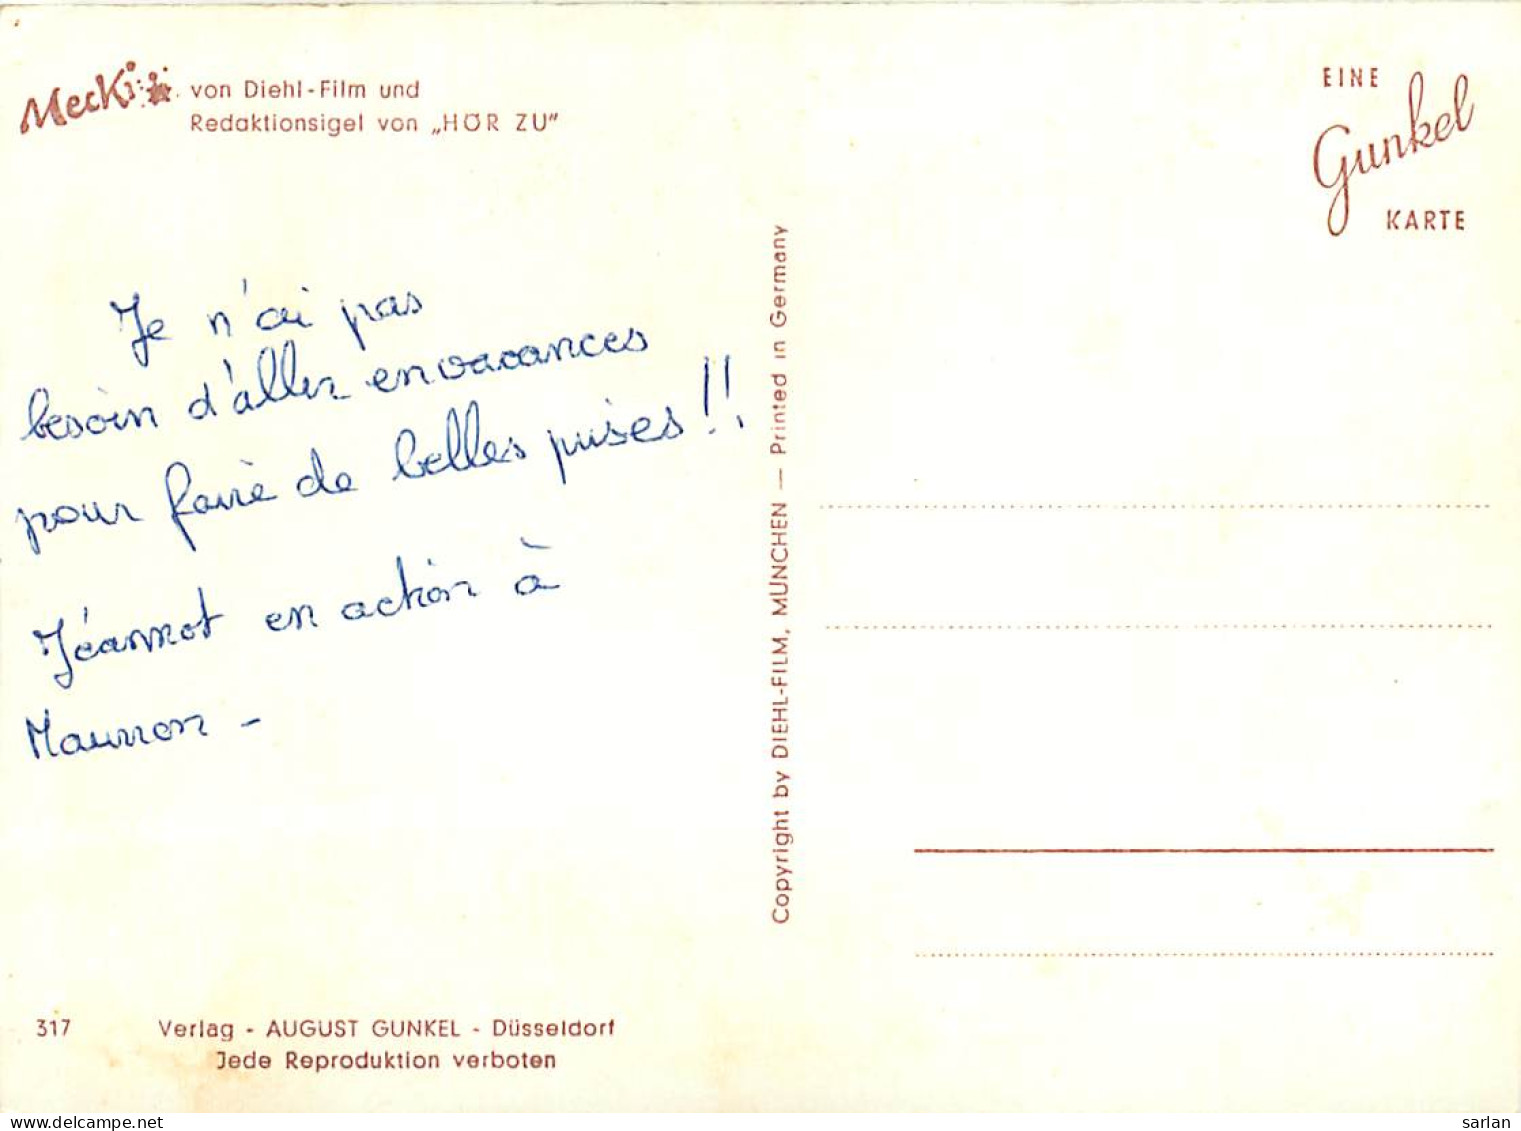 Mecki von Diehl-Film und
Redaktionsigel von „HÖR ZU"
EINE
Gunkel
KARTE
Je n'ai pas
besoin d'aller en vacances
pour faire de belles prises !!
Jéannot en action à
Mauron -
Copyright by DIEHL-FILM, MÜNCHEN — Printed in Germany
317 Verlag - AUGUST GUNKEL - Düsseldorf
Jede Reproduktion verboten
sarlan